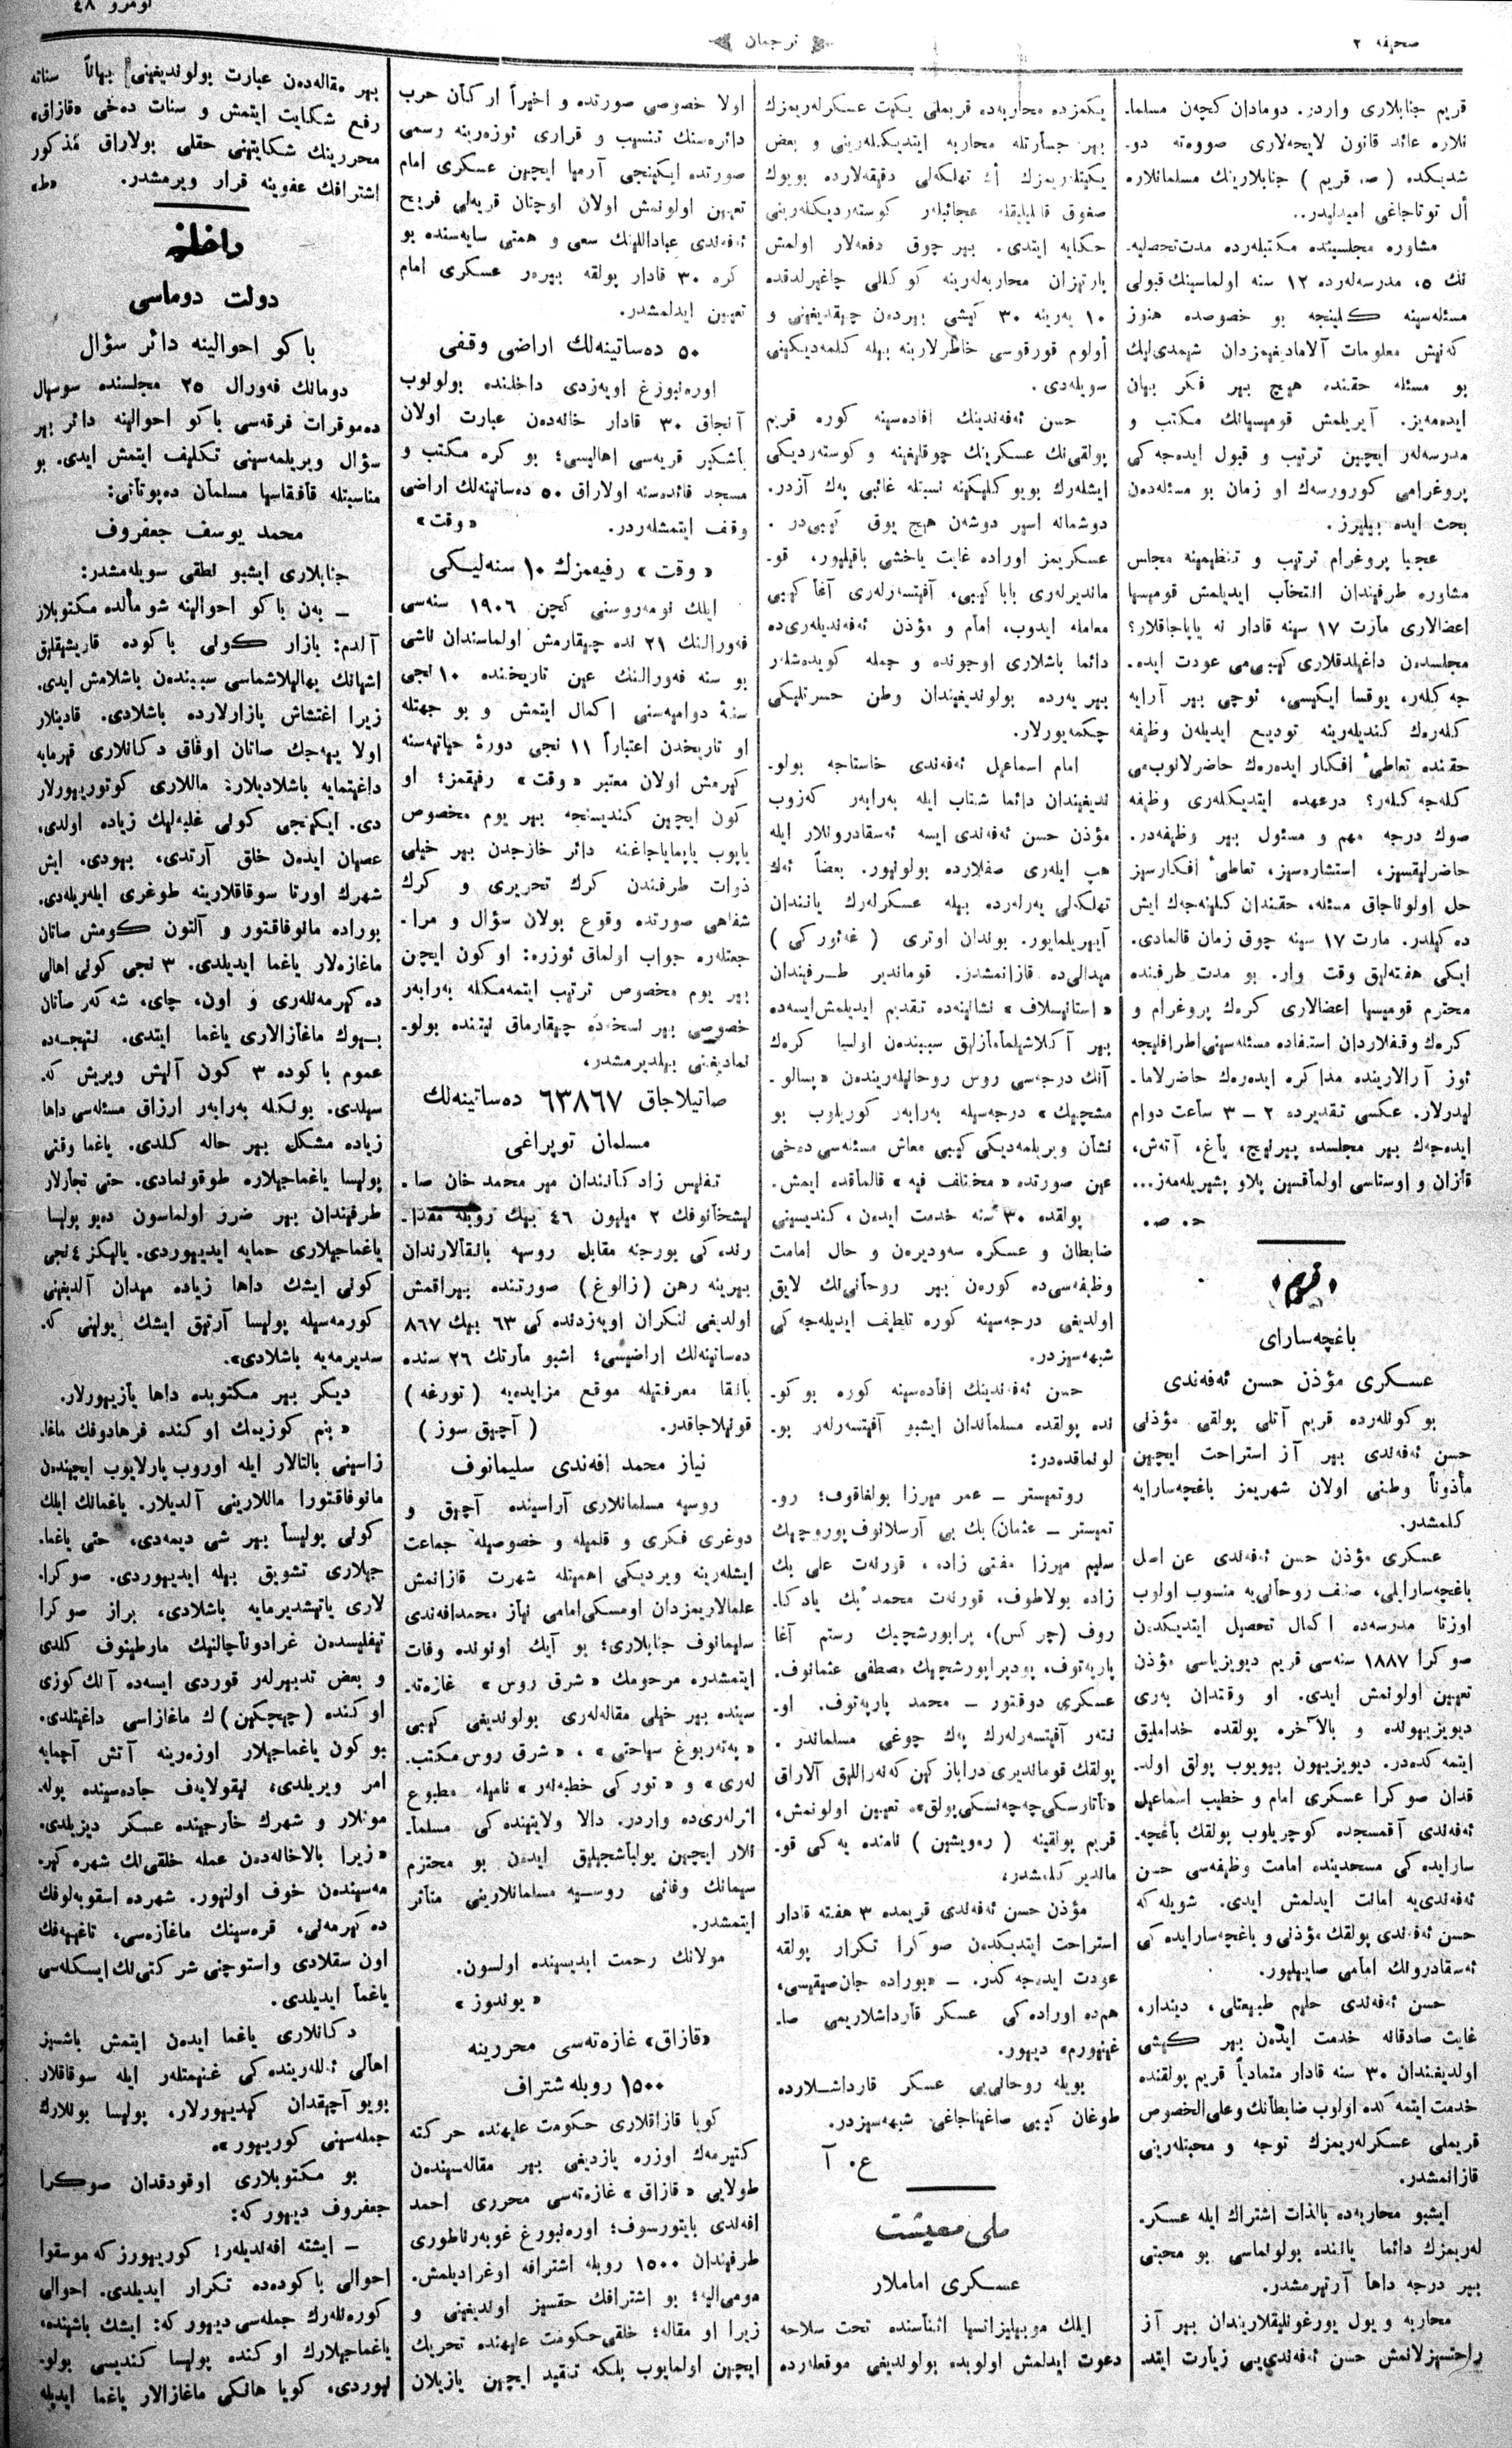 صحیفه ٢
ترجمان
نومرو ٤٨
قریم جنابلاری واردر. دومادان كچه‌ن مسلما-
نلاره عائد قانون لایحه‌لاری صووه‌ته دو-
شدیكده ( ص. قریم ) جنابلارینك مسلمانلاره
أل توتاجاغی امیدلیدر..
مشاوره مجلسینده مكتبلەرده مدت تحصلیه-
نك ٥، مدرسه‌لەرده ١٢ سنه اولماسینك قبولی
مسئله‌سینه كلینجه بو خصوصده هنوز
كه‌نیش معلومات آلامادیغیمزدان شیمدی‌لیك
بو مسئله حقنده هیچ بیر فكر بیان
ایده‌مه‌یز. آیریلمش قومیسیانك مكتب و
مدرسه‌لەر ایچین ترتیب و قبول ایده‌جه‌كی
پروغرامی كورورسه‌ك او زمان بو مسئله‌دەن
بحث ایده بیلیرز.
عجبا پروغرام ترتیب و تنظیمینه مجلس
مشاوره طرفیندان انتخاب ایدیلمش قومیسیا
اعضالاری مارت ١٧ سینه قادار نه یاپاجاقلار؟
مجلسدەن داغیلدقلاری كیبی‌می عودت ایده-
جه‌كلەر، یوقسا ایكیسی، ئوچی بیر آرایه
كلەرەك كندیلەرینه تودیع ایدیلەن وظیفه
حقنده تعاطیٔ افكار ایدەرەك حاضرلانوب‌می
كله‌جه‌كلەر؟ درعهده ایتدیكلەری وظیفه
صوك درجه مهم و مسئول بیر وظیفه‌در.
حاضرلیقسیز، استشاره‌سیز، تعاطیٔ افكارسیز
حل اولوناجاق مسئله، حقندان كلینه‌جه‌ك ایش
ده‌كیلدر. مارت ١٧ سینه چوق زمان قالمادی.
ایكی هفته‌لیق وقت وار. بو مدت ظرفنده
محترم قومیسیا اعضالاری كره‌ك پروغرام و
كره‌ك وقفلاردان استفاده مسئله‌سینی اطرافلیجه
ئوز آرالارینده مذاكره ایدەرەك حاضرلاما-
لیدرلار. عكسی تقدیرده ٢ - ٣ ساعت دوام
ایده‌جه‌ك بیر مجلسده پیرنیچ، یاغ، آته‌ش،
قازان و اوستاسی اولماقسین پلاو پشیریله‌مه‌ز...
ح. ص.
قریم
باغچه‌سارای
عسكری مؤذن حسن ئه‌فه‌ندی
بو كونلەرده قریم آتلی پولقی مؤذنی
حسن ئه‌فه‌ندی بیر آز استراحت ایچین
مأذوناً وطنی اولان شهریمز باغچه‌سارایه
كلمشدر.
عسكری مؤذن حسن ئه‌فه‌ندی عن اصل
باغچه‌سارایلی، صنف روحانی‌یه منسوب اولوب
اوزتا مدرسه‌ده اكمال تحصیل ایتدیكدەن
صوكرا ١٨٨٧ سنه‌سی قریم دیویزیاسی مؤذن
تعیین اولونمش ایدی. او وقتدان به‌ری
دیویزییونده و بالآخره پولقده خدامالیق
ایتمه‌كده‌در. دیویزییون بیویوب پولق اولد-
قدان صوكرا عسكری امام و خطیب اسماعیل
ئه‌فه‌ندی آقمسجده كوچریلوب پولقك باغچه-
سارایده‌كی مسجدینده امامت وظیفه‌سی حسن
ئه‌فه‌ندی‌یه امانت ایدلمش ایدی. شویله‌كه
حسن ئه‌فه‌ندی پولقك مؤذنی و باغچه‌سارایده‌كی
ئه‌سقادرونك امامی صایلیور.
حسن ئه‌فه‌ندی حلیم طبیعتلی، دیندار،
غایت صادقانه خدمت ایدەن بیر كیشی
اولدیغندان ٣٠ سنه قادار متمادیاً قریم پولقنده
خدمت ایتمه‌كده اولوب ضابطانك وعلی‌الخصوص
قریملی عسكرلەریمزك توجه و محبتلەرینی
قازانمشدر.
ایشبو محاربه‌ده بالذات اشتراك ایله عسكر-
لەریمزك دائما یاننده بولونماسی بو محبتی
بیر درجه داها آرتیرمشدر.
محاربه و یول یورغونلیقلاریندان بیر آز
راحتسیزلانمش حسن ئه‌فه‌ندی‌یی زیارت ایتد-
یكمزده محاربه‌ده قریملی یكیت عسكرلەریمزك
بیر جسارتله محاربه ایتدیكلەرینی و بعض
یكیتلریمزك أك تهلكه‌لی دقیقه‌لارده بویوك
صغوق قانلیلیقله عجائبلەر كوسته‌ردیكلەرینی
حكایه ایتدی. بیر چوق دفعه‌لار اولمش
پارتیزان محاربه‌لەرینه كوكللی چاغیرلدقده
١٠ یه‌رینه ٣٠ كیشی بیردەن چیقدیغینی و
أولوم قورقوسی خاطرلارینه بیله كلمه‌دیكینی
سویله‌دی.
حسن ئه‌فه‌ندینك افاده‌سینه كوره قریم
پولقی‌نك عسكرینك چوقلیغینه و كوسته‌ردیكی
ایشلەرك بویوكلیكینه نسبتله غائبی په‌ك آزدر.
دوشمانه اسیر دوشه‌ن هیچ یوق كیبی‌در .
عسكریمز اوراده غایت یاخشی باقیلیور، قو-
ماندیرلەری بابا كیبی، آفیتسه‌رلەری آغا كیبی
معامله ایدوب، امام و مؤذن ئه‌فه‌ندیلەری‌ده
دائما باشلاری اوجونده و جمله كویده‌شلەر
بیر یه‌رده بولوندیغیندان وطن حسرتلیكی
چكمه‌یورلار.
امام اسماعیل ئه‌فه‌ندی خاستاجه بولو-
ندیغیندان دائما شتاب ایله به‌رابه‌ر كه‌زوب
مؤذن حسن ئه‌فه‌ندی ایسه ئه‌سقادرونلار ایله
هپ ایلەری صفلارده بولونیور. بعضاً ئه‌ك
تهلكه‌لی یه‌رلەرده بیله عسكرلەرك یانندان
آیریلمایور. بوندان اوتری ( غه‌ئورگی )
میدالی‌ده قازانمشدر. قوماندیر طرفیندان
« استانیسلاف » نشانینه‌ده تقدیم ایدیلمش‌ایسه‌ده
بیر آكلاشیلماماز‌لیق سببندەن اولسا كره‌ك
آنك درجه‌سی روس روحانیلەریندەن « پسالو-
مشچیك » درجه‌سیله به‌رابه‌ر كوریلوب بو
نشان ویریلمه‌دیكی كیبی معاش مسئله‌سی ده‌خی
عین صورتده « مختلف فیه » قالماقده ایمش.
پولقده ٣٠ سنه خدمت ایدەن، كندیسینی
ضابطان و عسكره سه‌ودیره‌ن و حال امامت
وظیفه‌سی‌ده كوره‌ن بیر روحانی‌نك لایق
اولدیغی درجه‌سینه كوره تلطیف ایدیله‌جه‌كی
شبهه‌سیزدر.
حسن ئه‌فه‌ندینك افاده‌سینه كوره بو كو-
نده پولقده مسلماندان ایشبو آفیتسه‌رلەر بو-
لونماقده‌در:
روتمیستر - عمر میرزا بولغاقوف؛ رو-
تمیستر - عثمان بك بی آرسلانوف پوروچیك
سلیم میرزا مفتی زاده، قورنه‌ت علی بك
زاده بولاطوف، قورنه‌ت محمد بك یادكا-
روف (چركس)، پراپورشچیك رستم آغا
پاریه‌توف، پودپراپورشچیك مصطفی عثمانوف.
عسكری دوقتور - محمد پاریه‌توف. او-
نته‌ر آفیتسه‌رلەرك په‌ك چوغی مسلماندر .
پولقك قوماندیری دراباز كین كه‌نه‌راللیق آلاراق
«تاتارسكی چه‌چه‌نسكی پولق»ه تعیین اولونمش،
قریم پولقینه ( ره‌ویشین ) نامنده یه‌كی قو-
ماندیر كلمشدر.
مؤذن حسن ئه‌فه‌ندی قریمده ٣ هفته قادار
استراحت ایتدیكدەن صوكرا تكرار پولقه
عودت ایده‌جه‌كدر. - «بوراده جان صیقیسی،
هم‌ده اوراده‌كی عسكر قارداشلاریمی صا-
غینیورم» دییور.
بویله روحانی‌یی عسكر قارداشلارده
طوغان كیبی صاغیناجاغی شبهه‌سیزدر.
ع. آ
ملی معیشت
عسكری اماملار
ایلك موبیلیزاتسیا اثناسنده تحت سلاحه
دعوت ایدلمش اولوبده بولوندیغی موقعلەرده
اولا خصوصی صورتده و اخیراً اركان حرب
دائره‌سنك تنسیب و قراری ئوزه‌رینه رسمی
صورتده ایكینجی آرمیا ایچین عسكری امام
تعیین اولونمش اولان اوچتان قریه‌لی فریح
ئه‌فه‌ندی عباداللهنك سعی و همتی سایه‌سنده بو
كره ٣٠ قادار پولقه بیرەر عسكری امام
تعیین ایدلمشدر.
٥٠ ده‌ساتینه‌لك اراضی وقفی
اوره‌نبورغ اویه‌زدی داخلنده بولونوب
آنجاق ٣٠ قادار خانه‌دەن عبارت اولان
باشكیر قریه‌سی اهالیسی؛ بو كره مكتب و
مسجد فائده‌سنه اولاراق ٥٠ ده‌ساتینه‌لك اراضی
وقف ایتمشلەردر. «وقت»
« وقت » رفیقمزك ١٠ سنه‌لیكی
ایلك نومه‌روسنی كچن ١٩٠٦ سنه‌سی
فه‌ورالنك ٢١ نده چیقارمش اولماسندان ناشی
بو سنه فه‌ورالنك عین تاریخنده ١٠ نجی
سنهٔ دوامیه‌سنی اكمال ایتمش و بو جهتله
او تاریخدن اعتباراً ١١ نجی دورهٔ حیاتیه‌سنه
كیرمش اولان معتبر « وقت » رفیقمز؛ او
كون ایچین كندیسنجه بیر یوم مخصوص
یاپوب یاپمایاجاغنه دائر خارجدن بیر خیلی
ذوات طرفندن كرك تحریری و كرك
شفاهی صورتده وقوع بولان سؤال و مرا-
جعتلەره جواب اولماق ئوزره: او كون ایچین
بیر یوم مخصوص ترتیب ایتمه‌مكله به‌رابه‌ر
خصوصی بیر نسخه‌ده چیقارماق نیتنده بولو-
نمادیغنی بیلدیرمشدر.
صاتیلاجاق ٦٣٨٦٧ ده‌ساتینه‌لك
مسلمان توپراغی
تفلیس زادكانندان میر محمد خان صا-
لیشخانوفك ٢ میلیون ٤٦ بیك روبله مقدا-
رنده‌كی بورجنه مقابل روسیه بانقالارندان
بیرینه رهن (زالوغ) صورتنده بیراقمش
اولدیغی لنكران اویه‌زدنده‌كی ٦٣ بیك ٨٦٧
ده‌ساتینه‌لك اراضیسی؛ اشبو مارتك ٢٦ سنده
بانقا معرفتیله موقع مزایده‌یه (تورغه)
قونیلاجاقدر. ( آچیق سوز )
نیاز محمد افه‌ندی سلیمانوف
روسیه مسلمانلاری آراسینده آچیق و
دوغری فكری و قلمیله و خصوصیله جماعت
ایشلەرینه ویردیكی اهمیتله شهرت قازانمش
علمالاریمزدان اومسكی امامی نیاز محمدافه‌ندی
سلیمانوف جنابلاری؛ بو آیك اونونده وفات
ایتمشدر. مرحومك « شرق روس » غازه‌ته-
سینده بیر خیلی مقاله‌لەری بولوندیغی كیبی
« په‌ته‌ربوغ سیاحتی » ، « شرق روس مكتب-
لەری » و « توركی خطبه‌لەر » نامیله مطبوع
اثرلەری‌ده واردر. دالا ولایتینده‌كی مسلما-
نلار ایچین یولباشچیلیق ایدەن بو محترم
سیمانك وفاتی روسیه مسلمانلارینی متأثر
ایتمشدر.
مولانك رحمت ابدیسینده اولسون.
« یولدوز »
«قازاق» غازه‌ته‌سی محررینه
١٥٠٠ روبله شتراف
كویا قازاقلاری حكومت علیهنده حركته
كتیرمه‌ك اوزره یازدیغی بیر مقاله‌سیندەن
طولایی « قازاق » غازه‌ته‌سی محرری احمد
افه‌ندی بایتورسوف؛ اوره‌نبورغ غوبه‌رناطوری
طرفیندان ١٥٠٠ روبله اشترافه اوغرادیلمش.
مومی‌الیه؛ بو اشترافك حقسیز اولدیغینی و
زیرا او مقاله؛ خلقی حكومت علیهنده تحریك
ایچین اولمایوب بلكه تنقید ایچین یازیلان
بیر مقاله‌دەن عبارت بولوندیغینی بیاناً سناته
رفع شكایت ایتمش و سنات ده‌خی «قازاق»
محررینك شكایتینی حقلی بولاراق مذكور
اشترافك عفوینه قرار ویرمشدر. «ط»
داخلیه
دولت دوماسی
باكو احوالینه دائر سؤال
دومانك فه‌ورال ٢٥ مجلسنده سوسیال
ده‌موقرات فرقه‌سی باكو احوالینه دائر بیر
سؤال ویریلمه‌سینی تكلیف ایتمش ایدی. بو
مناسبتله قافقاسیا مسلمان ده‌پوتاتی:
محمد یوسف جعفروف
جنابلاری ایشبو نطقی سویله‌مشدر:
- به‌ن باكو احوالینه شو مألده مكتوبلار
آلدم: بازار كونی باكوده قاریشقلیق
اشیانك بهالیلاشماسی سببندەن باشلامش ایدی.
زیرا اغتشاش پازارلارده باشلادی. قادینلار
اولا ییه‌جك صاتان اوفاق دكانلاری قیرمایه
داغیتمایه باشلادیلار: ماللاری كوتوریورلار
دی. ایكینجی كونی غلبه‌لیك زیاده اولدی،
عصیان ایدەن خلق آرتدی، یهودی. ایش
شهرك اورتا سوقاقلارینه طوغری ایلەریله‌دی.
بوراده مانوفاقتور و آلتون كومش صاتان
ماغازه‌لار یاغما ایدیلدی. ٣ نجی كونی اهالی
ده‌كیرمه‌نلەری و اون، چای، شه‌كه‌ر صاتان
بیوك ماغازالاری یاغما ایتدی. نتیجه‌ده
عموم باكوده ٣ كون آلیش ویریش كه-
سیلدی. بونكله به‌رابه‌ر ارزاق مسئله‌سی داها
زیاده مشكل بیر حاله كلدی. یاغما وقتی
پولیسا یاغماجیلاره طوقونمادی. حتی تجارلار
طرفیندان بیر ضرر اولماسون ده‌یو پولیسا
یاغماجیلاری حمایه ایدییوردی. یالیكز ٤ نجی
كونی ایشك داها زیاده میدان آلدیغینی
كورمه‌سیله پولیسا آرتیق ایشك یولنی كه-
سدیرمه‌یه باشلادی».
دیكر بیر مكتوبده داها یازییورلار.
« بنم كوزیمك اوكنده فرهادوفك ماغا-
زاسینی بالتالار ایله اوروب پارلایوب ایچیندەن
مانوفاقتورا ماللارینی آلدیلار. یاغمانك ایلك
كونی پولیسا بیر شی دیمه‌دی، حتی یاغما-
جیلاری تشویق بیله ایدییوردی. صوكرا-
لاری یاتیشدیرمایه باشلادی، براز صوكرا
تیفلیسدەن غرادوناچالنیك مارطینوف كلدی
و بعض تدبیرلەر قوردی ایسه‌ده آنك كوزی
اوكنده (چیچكین)ك ماغازاسی داغیتلدی.
بو كون یاغماجیلار اوزه‌رینه آتش آچمایه
امر ویریلدی، نیقولایه‌ف جاده‌سینده پوله-
موتلار و شهرك خارجینده عسكر دیزیلدی.
«زیرا بالاخانه‌دەن عمله خلقی‌نك شهره كیر-
مه‌سیندەن خوف اولنیور. شهرده اسقوبه‌لوفك
ده‌كیرمه‌نی، قره‌سینك ماغازه‌سی، تاغییه‌فك
اون سقلادی واستوچنی شركتی‌نك ایسكله‌سی
یاغما ایدیلدی.
دكانلاری یاغما ایدەن ایتمش باشسیز
اهالی ئه‌للەرینده‌كی غنیمتلەر ایله سوقاقلار
بویو آچیقدان كیدییورلار. پولیسا بونلارك
جمله‌سینی كورییور».
بو مكتوبلاری اوقودقدان صوكرا
جعفروف دییوركه:
- ایشته افه‌ندیلەر! كورییورز كه موسقوا
احوالی باكوده‌ده تكرار ایدیلدی. احوالی
كوره‌نلەرك جمله‌سی دییور كه: ایشك باشینده،
یاغماجیلارك اوكنده پولیسا كندیسی بولو-
نیوردی، كویا هانكی ماغازالار یاغما ایدیله